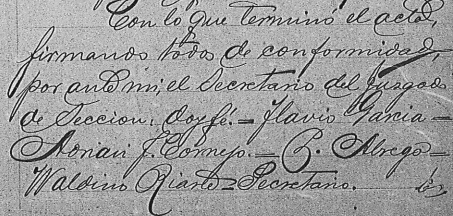 Con lo que terminó el acto,
firmando todos de conformidad,
por ante mi, el Secretario del Juzgado
de Seccion, doy fé.= Flavio Garcia =
Adnan J. Cornejo.= P. Abrego =
Waldino Riarte = Secretario.